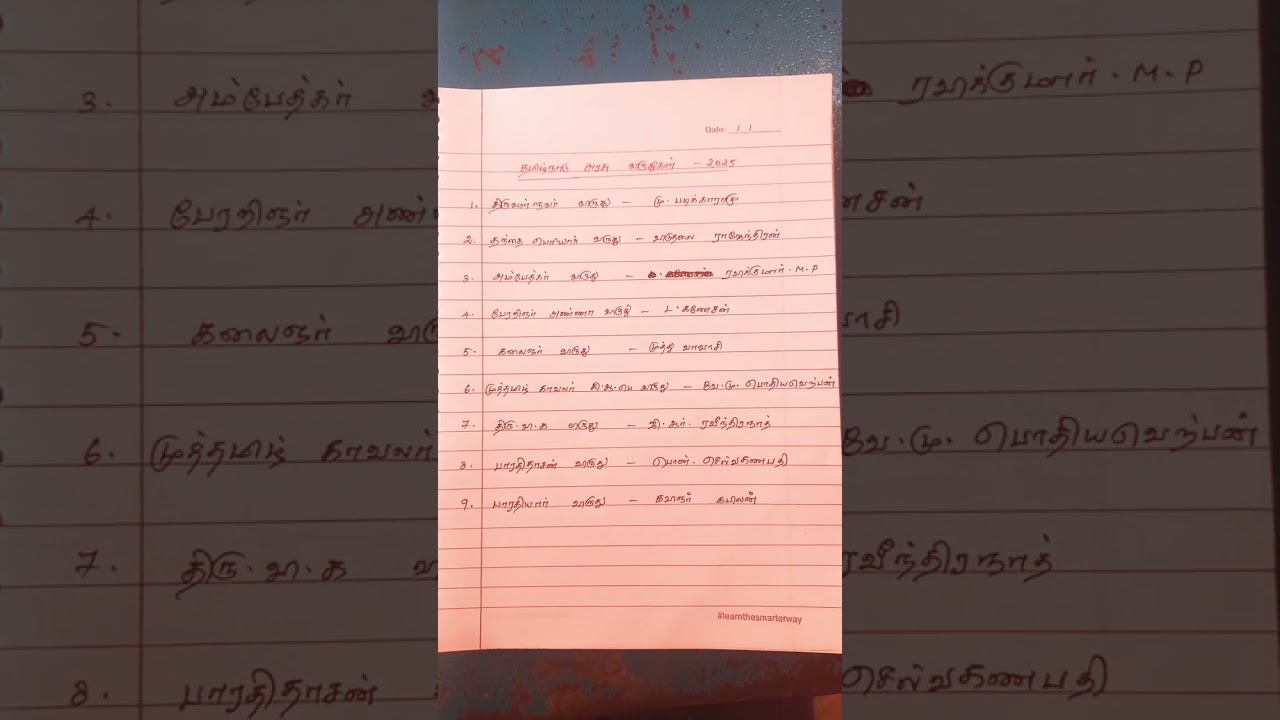 Date: __/__/____
தமிழ்நாடு அரசு விருதுகள் - 2025
1. திருவள்ளுவர் விருது - மு. படிக்காராமு
2. தந்தை பெரியார் விருது - விடுதலை ராஜேந்திரன்
3. அம்பேத்கர் விருது - ரவிக்குமார். M.P
4. பேரறிஞர் அண்ணா விருது - L. கணேசன்
5. கலைஞர் விருது - முத்து வாவாசி
6. முத்தமிழ் காவலர் கி.ஆ.பெ விருது - வே.மு. பொதியவெற்பன்
7. திரு.வி.க விருது - ஜி.ஆர். ரவீந்திரநாத்
8. பாரதிதாசன் விருது - பொன். செல்வகணபதி
9. பாரதியார் விருது - கவிஞர் கபிலன்
#learnthesmarterway